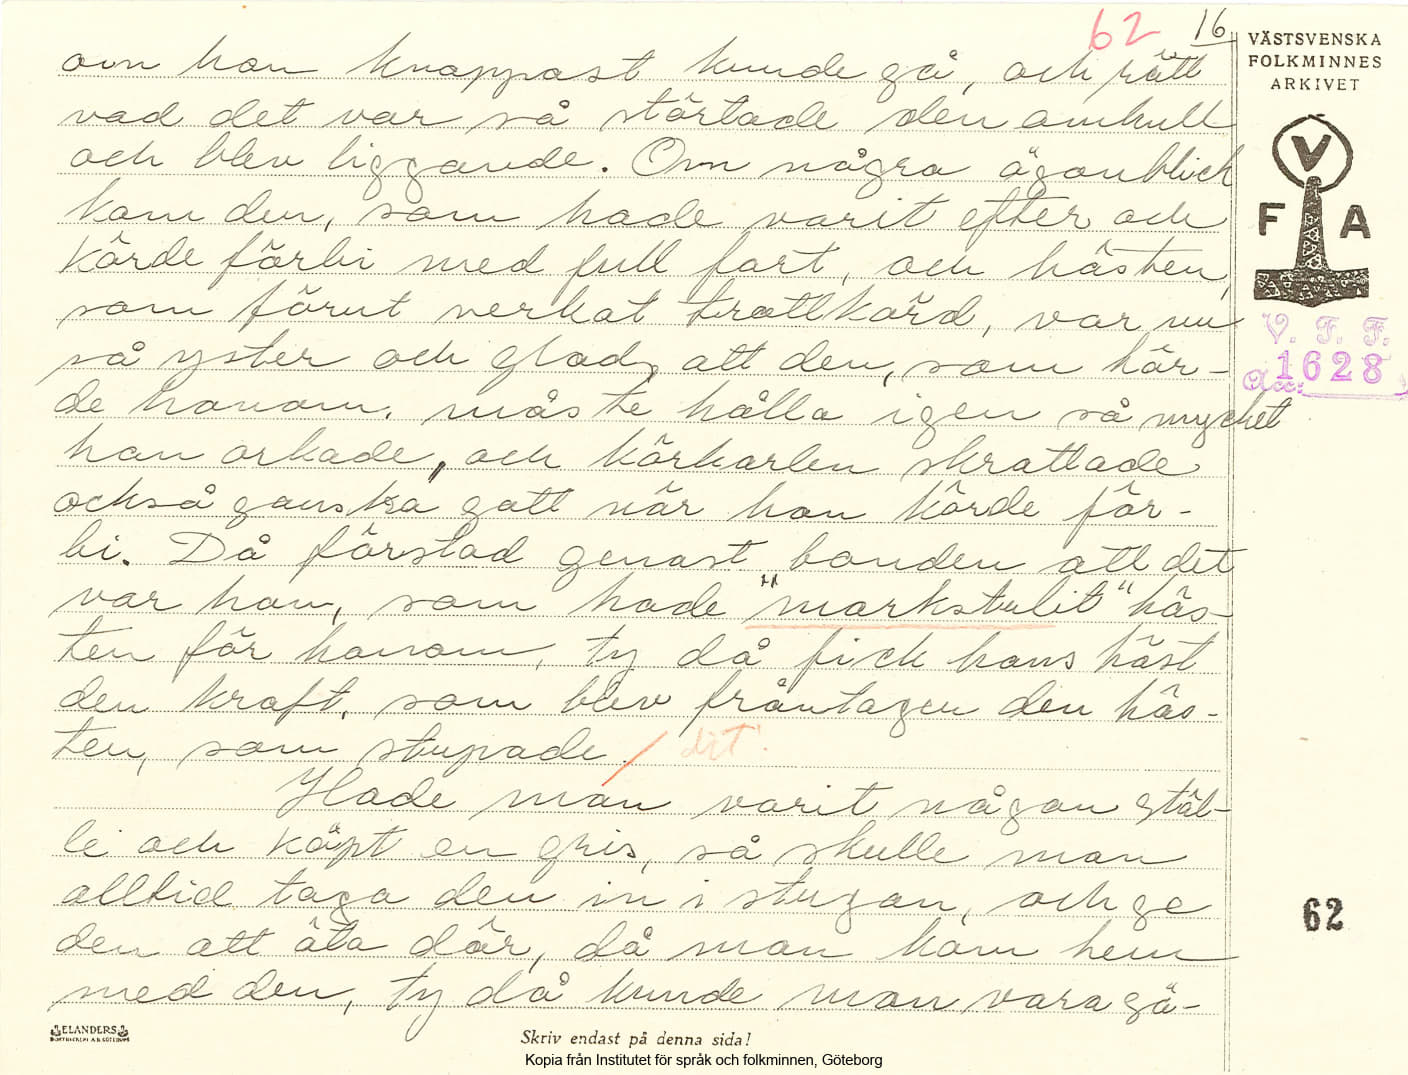 62 16
VÄSTSVENSKA
FOLKMINNES
ARKIVET
V
F A
V. F. F.
Acc: 1628
om han knappast kunde gå, och rätt
vad det var så störtade den omkull
och blev liggande. Om några ögonblick
kom den, som hade varit efter och
körde förbi med full fart, och hästen,
som förut verkat trollkörd, var nu
så yster och glad, att den, som kör-
de honom. måste hålla igen så mycket
han orkade, och körkarlen skrattade
också ganska gott när han körde för-
bi. Då förstod genast bonden att det
var han, som hade "markstulit" häs-
ten för honom, ty då fick hans häst
den kraft, som blev fråntagen den häs-
ten, som stupade. / dit!
Hade man varit någon stäl-
le och köpt en gris, så skulle man
alltid taga den in i stugan, och ge
den att äta där, då man kom hem
med den, ty då kunde man vara sä-
62
ELANDERS
BOKTRYCKERI A.B. GÖTEBORG
Skriv endast på denna sida!
Kopia från Institutet för språk och folkminnen, Göteborg